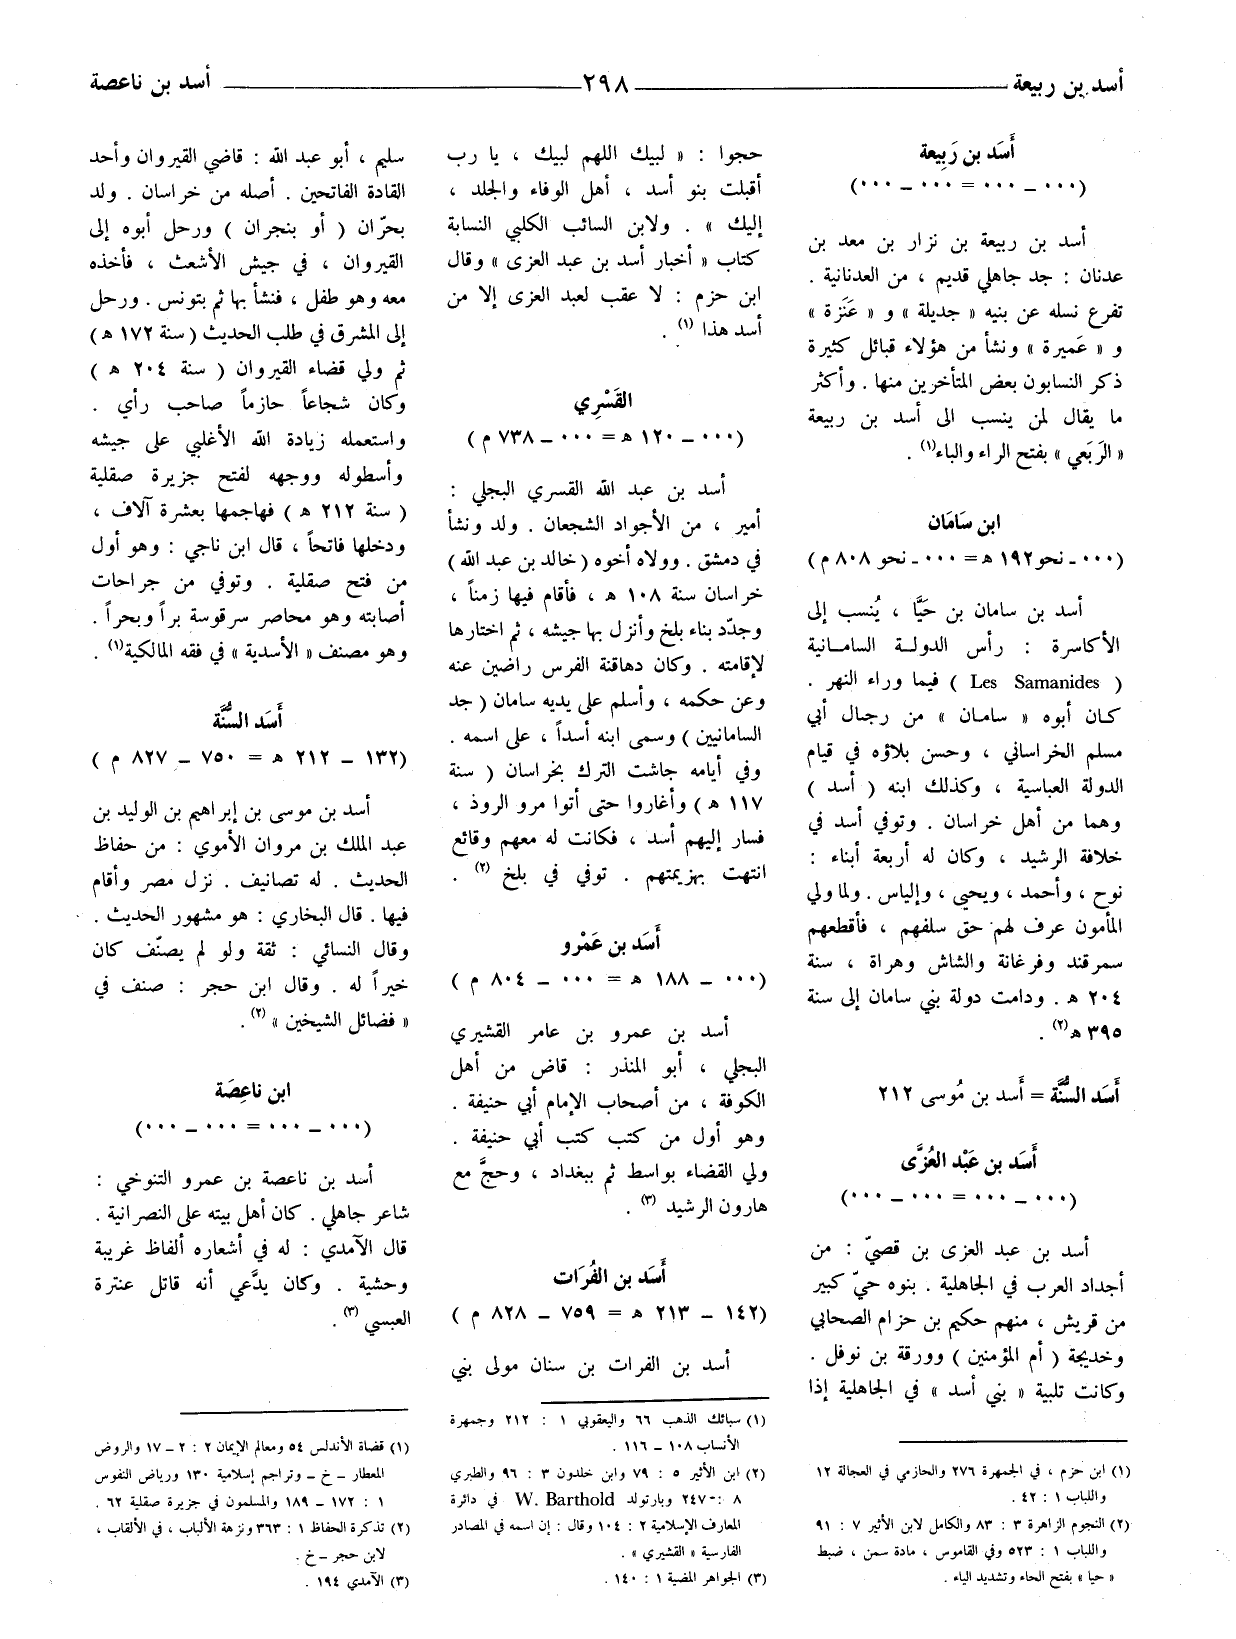 أسد بن ربيعة ٢٩٨ أسد بن ناعصة
أَسَد بن رَبِيعة
(٠٠٠ ــ ٠٠٠ = ٠٠٠ ــ ٠٠٠)
أسد بن ربيعة بن نزار بن معد بن
عدنان : جد جاهلي قديم ، من العدنانية .
تفرع نسله عن بنيه « جديلة » و « عَنَزة »
و « عَميرة » ونشأ من هؤلاء قبائل كثيرة
ذكر النسابون بعض المتأخرين منها . وأكثر
ما يقال لمن ينسب الى أسد بن ربيعة
« الرَبَعي » بفتح الراء والباء(١) .
ابن سَامَان
(٠٠٠ ـ نحو ١٩٢ ه = ٠٠٠ ـ نحو ٨٠٨ م)
أسد بن سامان بن حَيَّا ، يُنسب إلى
الأكاسرة : رأس الدولة السامانية
( Les Samanides ) فيما وراء النهر .
كان أبوه « سامان » من رجال أبي
مسلم الخراساني ، وحسن بلاؤه في قيام
الدولة العباسية ، وكذلك ابنه ( أسد )
وهما من أهل خراسان . وتوفي أسد في
خلافة الرشيد ، وكان له أربعة أبناء :
نوح ، وأحمد ، ويحيى ، وإلياس . ولما ولي
المأمون عرف لهم حق سلفهم ، فأقطعهم
سمرقند وفرغانة والشاش وهراة ، سنة
٢٠٤ ه . ودامت دولة بني سامان إلى سنة
٣٩٥ ه(٢) .
أَسَد السُّنَّة = أَسد بن مُوسى ٢١٢
أَسَد بن عَبْد العُزَّى
(٠٠٠ ــ ٠٠٠ = ٠٠٠ ــ ٠٠٠)
أسد بن عبد العزى بن قصيّ : من
أجداد العرب في الجاهلية . بنوه حيّ كبير
من قريش ، منهم حكيم بن حزام الصحابي
وخديجة ( أم المؤمنين ) وورقة بن نوفل .
وكانت تلبية « بني أسد » في الجاهلية إذا
(١) ابن حزم ، في الجمهرة ٢٧٦ والحازمي في العجالة ١٢
واللباب ١ : ٤٢ .
(٢) النجوم الزاهرة ٣ : ٨٣ والكامل لابن الأثير ٧ : ٩١
واللباب ١ : ٥٢٣ وفي القاموس ، مادة سمن ، ضبط
« حيا » بفتح الحاء وتشديد الياء .
حجوا : « لبيك اللهم لبيك ، يا رب
أقبلت بنو أسد ، أهل الوفاء والجلد ،
إليك » . ولابن السائب الكلبي النسابة
كتاب « أخبار أسد بن عبد العزى » وقال
ابن حزم : لا عقب لعبد العزى إلا من
أسد هذا (١) .
القَسْرِي
(٠٠٠ ــ ١٢٠ ه = ٠٠٠ ــ ٧٣٨ م)
أسد بن عبد الله القسري البجلي :
أمير ، من الأجواد الشجعان . ولد ونشأ
في دمشق . وولاه أخوه ( خالد بن عبد الله )
خراسان سنة ١٠٨ ه ، فأقام فيها زمناً ،
وجدّد بناء بلخ وأنزل بها جيشه ، ثم اختارها
لإقامته . وكان دهاقنة الفرس راضين عنه
وعن حكمه ، وأسلم على يديه سامان ( جد
السامانيين ) وسمى ابنه أسداً ، على اسمه .
وفي أيامه جاشت الترك بخراسان ( سنة
١١٧ ه ) وأغاروا حتى أتوا مرو الروذ ،
فسار إليهم أسد ، فكانت له معهم وقائع
انتهت بهزيمتهم . توفي في بلخ (٢) .
أَسَد بن عَمْرو
(٠٠٠ ــ ١٨٨ ه = ٠٠٠ ــ ٨٠٤ م)
أسد بن عمرو بن عامر القشيري
البجلي ، أبو المنذر : قاض من أهل
الكوفة ، من أصحاب الإمام أبي حنيفة .
وهو أول من كتب كتب أبي حنيفة .
ولي القضاء بواسط ثم ببغداد ، وحجَّ مع
هارون الرشيد (٣) .
أَسَد بن الفُرَات
(١٤٢ ــ ٢١٣ ه = ٧٥٩ ــ ٨٢٨ م)
أسد بن الفرات بن سنان مولى بني
(١) سبائك الذهب ٦٦ واليعقوبي ١ : ٢١٢ وجمهرة
الأنساب ١٠٨ ــ ١١٦ .
(٢) ابن الأثير ٥ : ٧٩ وابن خلدون ٣ : ٩٦ والطبري
٨ : ٢٤٧ وبارتولد W. Barthold في دائرة
المعارف الإسلامية ٢ : ١٠٤ وقال : إن اسمه في المصادر
الفارسية « القشيري » .
(٣) الجواهر المضية ١ : ١٤٠ .
سليم ، أبو عبد الله : قاضي القيروان وأحد
القادة الفاتحين . أصله من خراسان . ولد
بحرّان ( أو بنجران ) ورحل أبوه إلى
القيروان ، في جيش الأشعث ، فأخذه
معه وهو طفل ، فنشأ بها ثم بتونس . ورحل
إلى المشرق في طلب الحديث ( سنة ١٧٢ ه )
ثم ولي قضاء القيروان ( سنة ٢٠٤ ه )
وكان شجاعاً حازماً صاحب رأي .
واستعمله زيادة الله الأغلبي على جيشه
وأسطوله ووجهه لفتح جزيرة صقلية
( سنة ٢١٢ ه ) فهاجمها بعشرة آلاف ،
ودخلها فاتحاً ، قال ابن ناجي : وهو أول
من فتح صقلية . وتوفي من جراحات
أصابته وهو محاصر سرقوسة براً وبحراً .
وهو مصنف « الأسدية » في فقه المالكية(١) .
أَسَد السُّنَّة
(١٣٢ ــ ٢١٢ ه = ٧٥٠ ــ ٨٢٧ م)
أسد بن موسى بن إبراهيم بن الوليد بن
عبد الملك بن مروان الأموي : من حفاظ
الحديث . له تصانيف . نزل مصر وأقام
فيها . قال البخاري : هو مشهور الحديث .
وقال النسائي : ثقة ولو لم يصنّف كان
خيراً له . وقال ابن حجر : صنف في
« فضائل الشيخين » (٢) .
ابن ناعِصَة
(٠٠٠ ــ ٠٠٠ = ٠٠٠ ــ ٠٠٠)
أسد بن ناعصة بن عمرو التنوخي :
شاعر جاهلي . كان أهل بيته على النصرانية .
قال الآمدي : له في أشعاره ألفاظ غريبة
وحشية . وكان يدَّعي أنه قاتل عنترة
العبسي (٣) .
(١) قضاة الأندلس ٥٤ ومعالم الإيمان ٢ : ٢ ــ ١٧ والروض
المعطار ــ خ ــ وتراجم إسلامية ١٣٠ ورياض النفوس
١ : ١٧٢ ــ ١٨٩ والمسلمون في جزيرة صقلية ٦٢ .
(٢) تذكرة الحفاظ ١ : ٣٦٣ ونزهة الألباب ، في الألقاب ،
لابن حجر ــ خ .
(٣) الآمدي ١٩٤ .